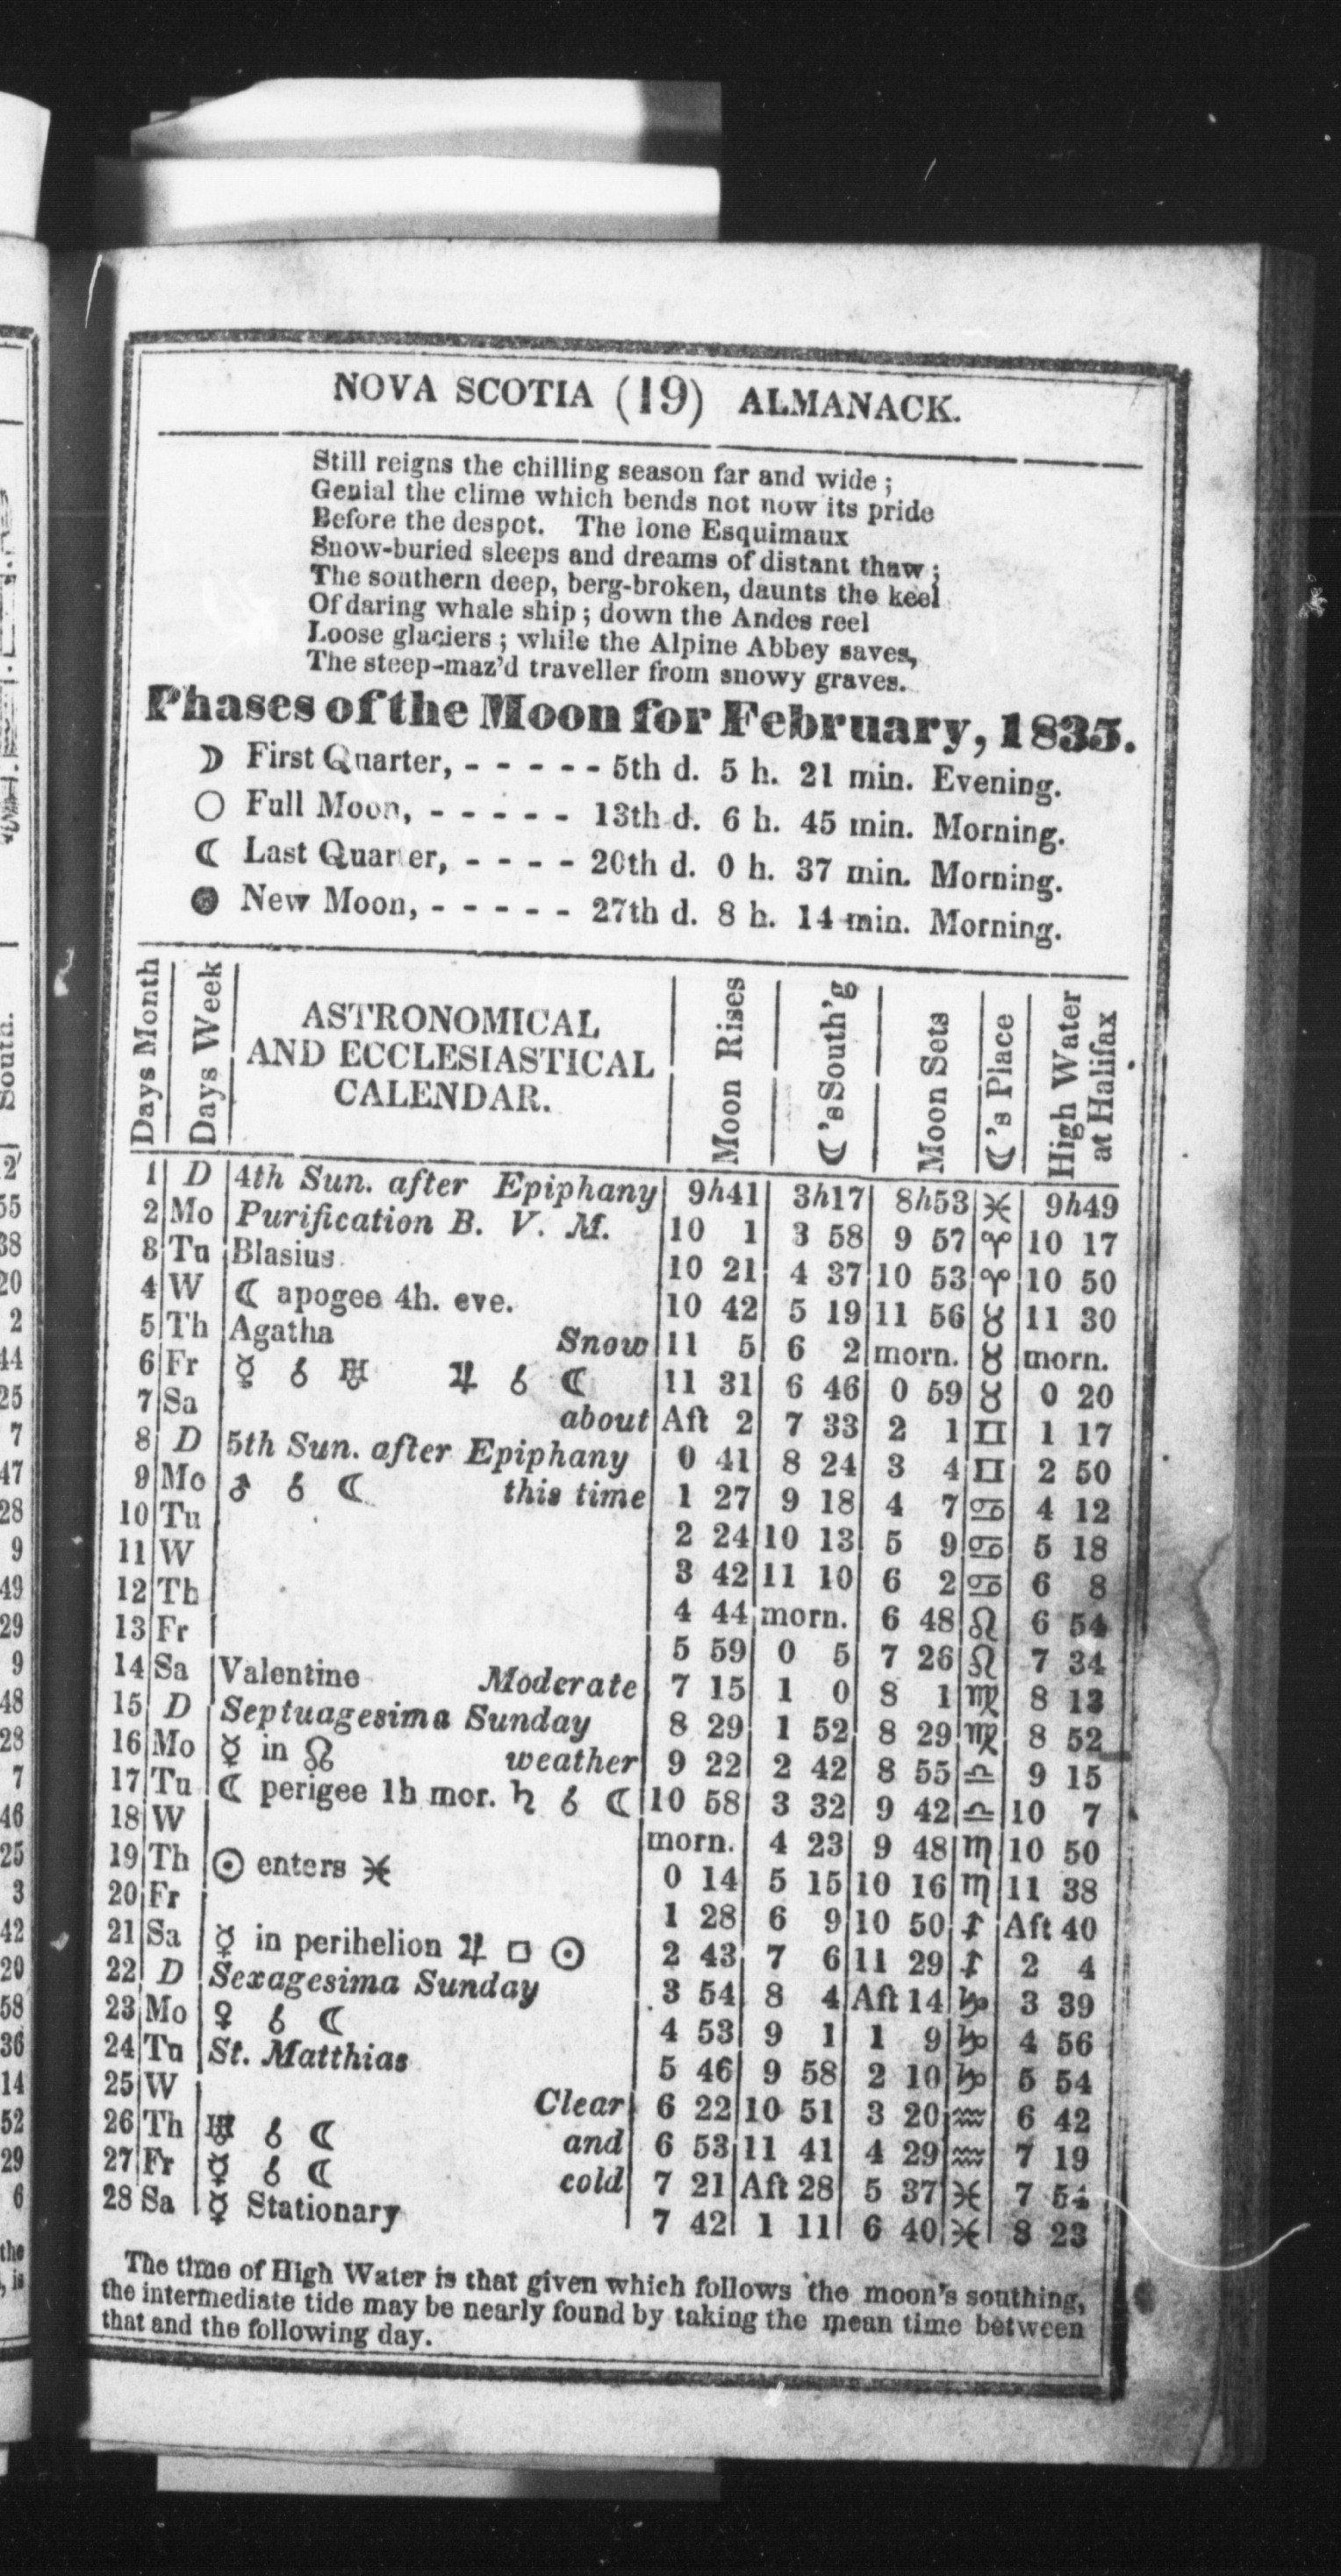 NOVA SCOTIA (19) ALMANACK.
Still reigns the chilling season far and wide;
Genial the clime which bends not now its pride
Before the despot. The lone Esquimaux
Snow-buried sleeps and dreams of distant thaw;
The southern deep, berg-broken, daunts the keel
Of daring whale ship; down the Andes reel
Loose glaciers; while the Alpine Abbey saves,
The steep-maz'd traveller from snowy graves.
Phases of the Moon for February, 1835.
☽ First Quarter, - - - - - 5th d. 5 h. 21 min. Evening.
○ Full Moon, - - - - - 13th d. 6 h. 45 min. Morning.
☾ Last Quarter, - - - - 20th d. 0 h. 37 min. Morning.
● New Moon, - - - - - 27th d. 8 h. 14 min. Morning.
Days Month | Days Week | ASTRONOMICAL AND ECCLESIASTICAL CALENDAR. | Moon Rises | ☾'s South'g | Moon Sets | ☾'s Place | High Water at Halifax
1 D 4th Sun. after Epiphany 9h41 3h17 8h53 ♓ 9h49
2 Mo Purification B. V. M. 10 1 3 58 9 57 ♈ 10 17
3 Tu Blasius 10 21 4 37 10 53 ♈ 10 50
4 W ☾ apogee 4h. eve. 10 42 5 19 11 56 ♉ 11 30
5 Th Agatha Snow 11 5 6 2 morn. ♉ morn.
6 Fr ☿ ☌ ♅ ♃ ☌ ☾ 11 31 6 46 0 59 ♉ 0 20
7 Sa about Aft 2 7 33 2 1 ♊ 1 17
8 D 5th Sun. after Epiphany 0 41 8 24 3 4 ♊ 2 50
9 Mo ♂ ☌ ☾ this time 1 27 9 18 4 7 ♋ 4 12
10 Tu 2 24 10 13 5 9 ♋ 5 18
11 W 3 42 11 10 6 2 ♋ 6 8
12 Th 4 44 morn. 6 48 ♌ 6 54
13 Fr 5 59 0 5 7 26 ♌ 7 34
14 Sa Valentine Moderate 7 15 1 0 8 1 ♍ 8 13
15 D Septuagesima Sunday 8 29 1 52 8 29 ♍ 8 52
16 Mo ☿ in ☊ weather 9 22 2 42 8 55 ♎ 9 15
17 Tu ☾ perigee 1h mor. ♄ ☌ ☾ 10 58 3 32 9 42 ♎ 10 7
18 W morn. 4 23 9 48 ♏ 10 50
19 Th ☉ enters ♓ 0 14 5 15 10 16 ♏ 11 38
20 Fr 1 28 6 9 10 50 ♐ Aft 40
21 Sa ☿ in perihelion ♃ □ ☉ 2 43 7 6 11 29 ♐ 2 4
22 D Sexagesima Sunday 3 54 8 4 Aft 14 ♑ 3 39
23 Mo ♀ ☌ ☾ 4 53 9 1 1 9 ♑ 4 56
24 Tu St. Matthias 5 46 9 58 2 10 ♑ 5 54
25 W Clear 6 22 10 51 3 20 ♒ 6 42
26 Th ♅ ☌ ☾ and 6 53 11 41 4 29 ♒ 7 19
27 Fr ☿ ☌ ☾ cold 7 21 Aft 28 5 37 ♓ 7 54
28 Sa ☿ Stationary 7 42 1 11 6 40 ♓ 8 23
The time of High Water is that given which follows the moon's southing,
the intermediate tide may be nearly found by taking the mean time between
that and the following day.